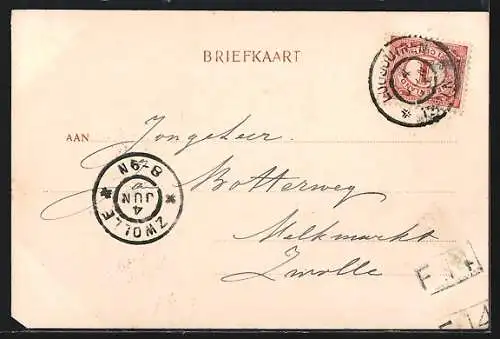 BRIEFKAART
AAN Jongeheer
a Botterweg
Melkmarkt
Zwolle
ZWOLLE
4
JUN
8-9N